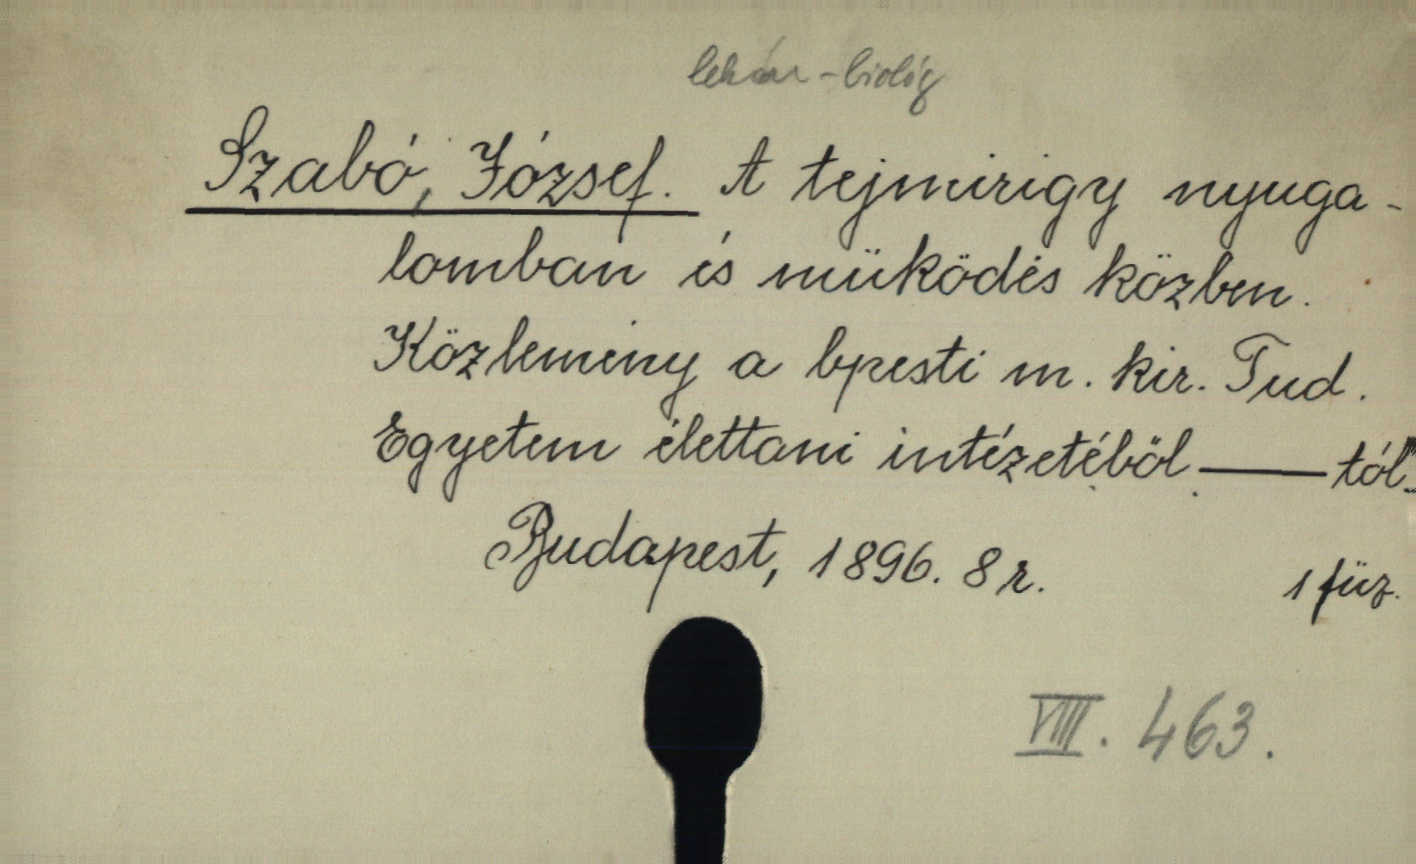 lekár - biológ
Szabó, József. A tejmirigy nyuga-
lomban és müködés közben.
Közlemény a bpesti m. kir. Tud.
Egyetem élettani intézetéből —— tól
Budapest, 1896. 8 r. 1 füz.
VIII. 463.